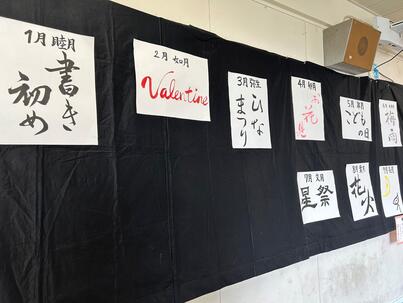 1月 睦月
書き
初め
2月 如月
Valentine
3月 弥生
ひな
まつり
4月 卯月
お花見
5月 皐月
こども
の日
6月
梅雨
7月 文月
星祭
8月 葉月
花火
9月